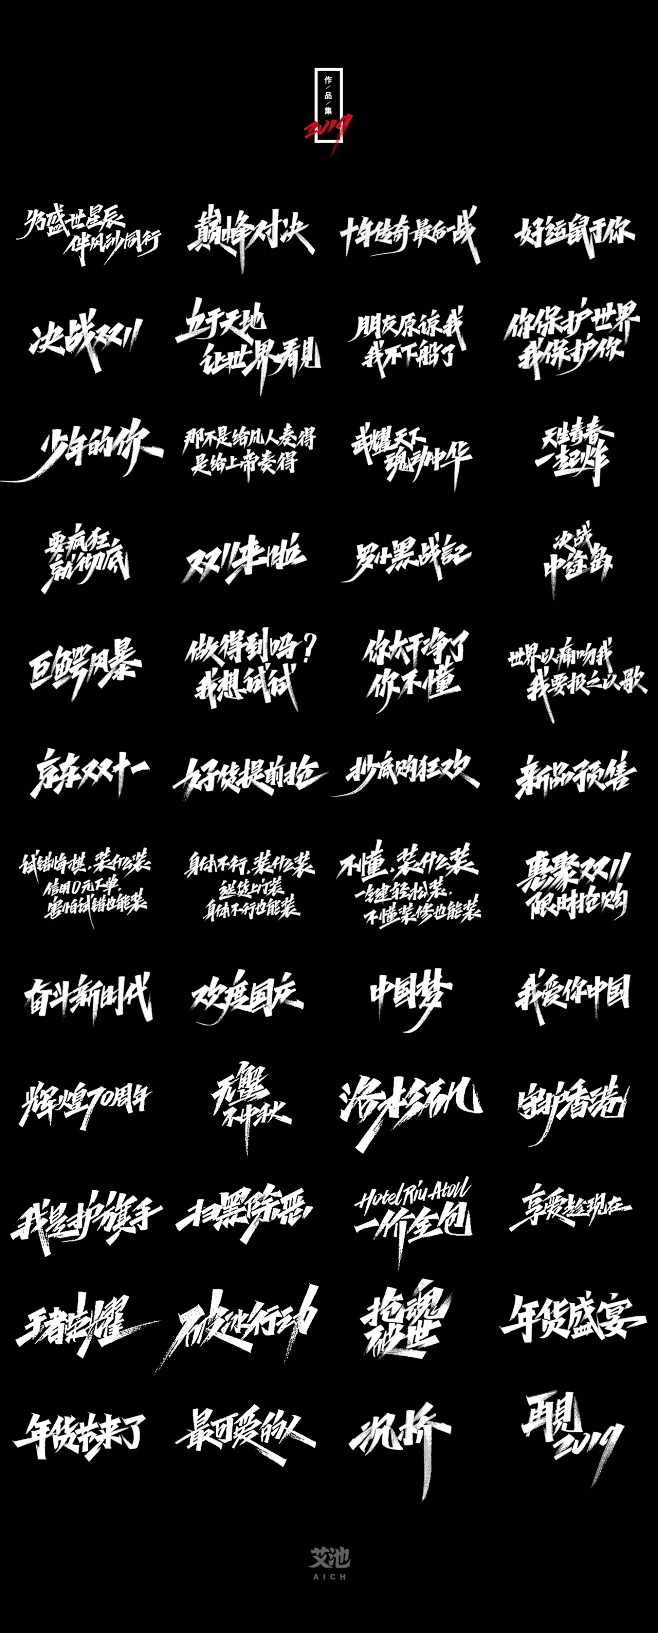 作/品/集
2019
为盛世星辰
伴风沙同行
巅峰对决
十年传奇最后一战
好运鼠于你
决战双11
立于天地
让世界看見
朋友原谅我
我不下船了
你保护世界
我保护你
少年的你
那不是给凡人奏得
是给上帝奏得
武耀天下
魂动中华
天生青春
一起炸
要疯狂
就彻底
双11来啦
罗小黑战記
决战
中途岛
巨鳄风暴
做得到吗?
我想试试
你太干净了
你不懂
世界以痛吻我
我要报之以歌
京东双十一
好货提前抢
抄底购狂欢
新品预售
试错悔棋.装什么装
信用0元下单.
害怕试错也能装
身体不行.装什么装
送货上门装
身体不行也能装
不懂.装什么装
一键轻松装.
不懂装修也能装
惠聚双11
限时抢购
奋斗新时代
欢度国庆
中国梦
我爱你中国
辉煌70周年
无蟹
不中秋
洛杉矶
守护香港
我是护旗手
扫黑除恶
Hotel Riu Atoll
一价全包
享受趁现在
王者荣耀
破冰行动
抢魂
破世
年货盛宴
年货节来了
最可爱的人
汎桥
再見
2019
艾池
AICH